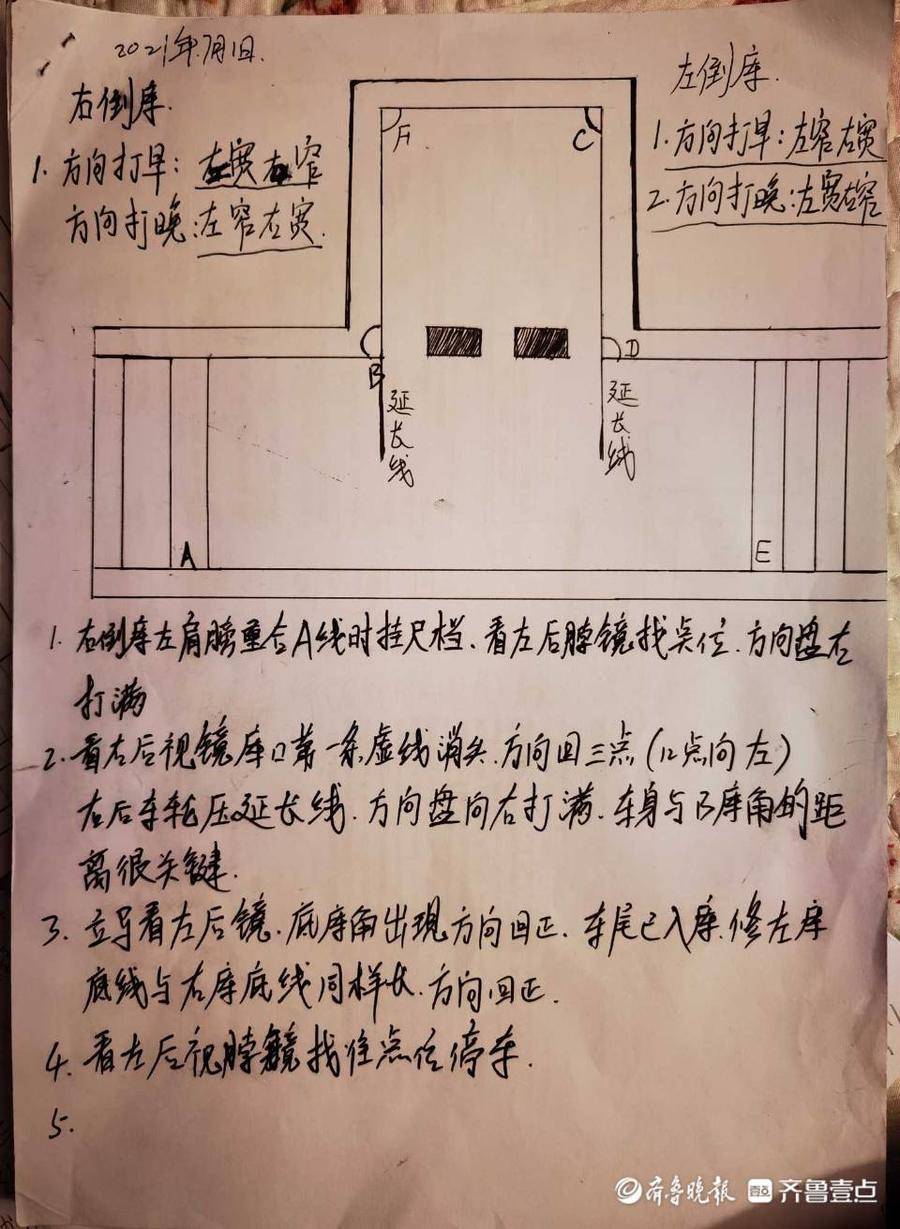 2021年7月1日.
右倒库.
1. 方向打早: 左宽右窄
方向打晚:左窄右宽.
左倒库.
1.方向打早:左窄右宽
2.方向打晚:左宽右窄
F
C
B
D
延长线
延长线
A
E
1. 右倒库左肩膀重合A线时挂尺档、看左后脖镜找点位.方向盘右
打满
2.看右后视镜库口第一条虚线消失.方向回三点(12点向左)
右后车轮压延长线.方向盘向右打满.车身与B库角的距
离很关键.
3. 立马看左后镜.底库角出现方向回正.车尾已入库.修左库
底线与右库底线同样长.方向回正.
4. 看左后视脖镜找准点位停车.
5.
齐鲁晚报 齐鲁壹点